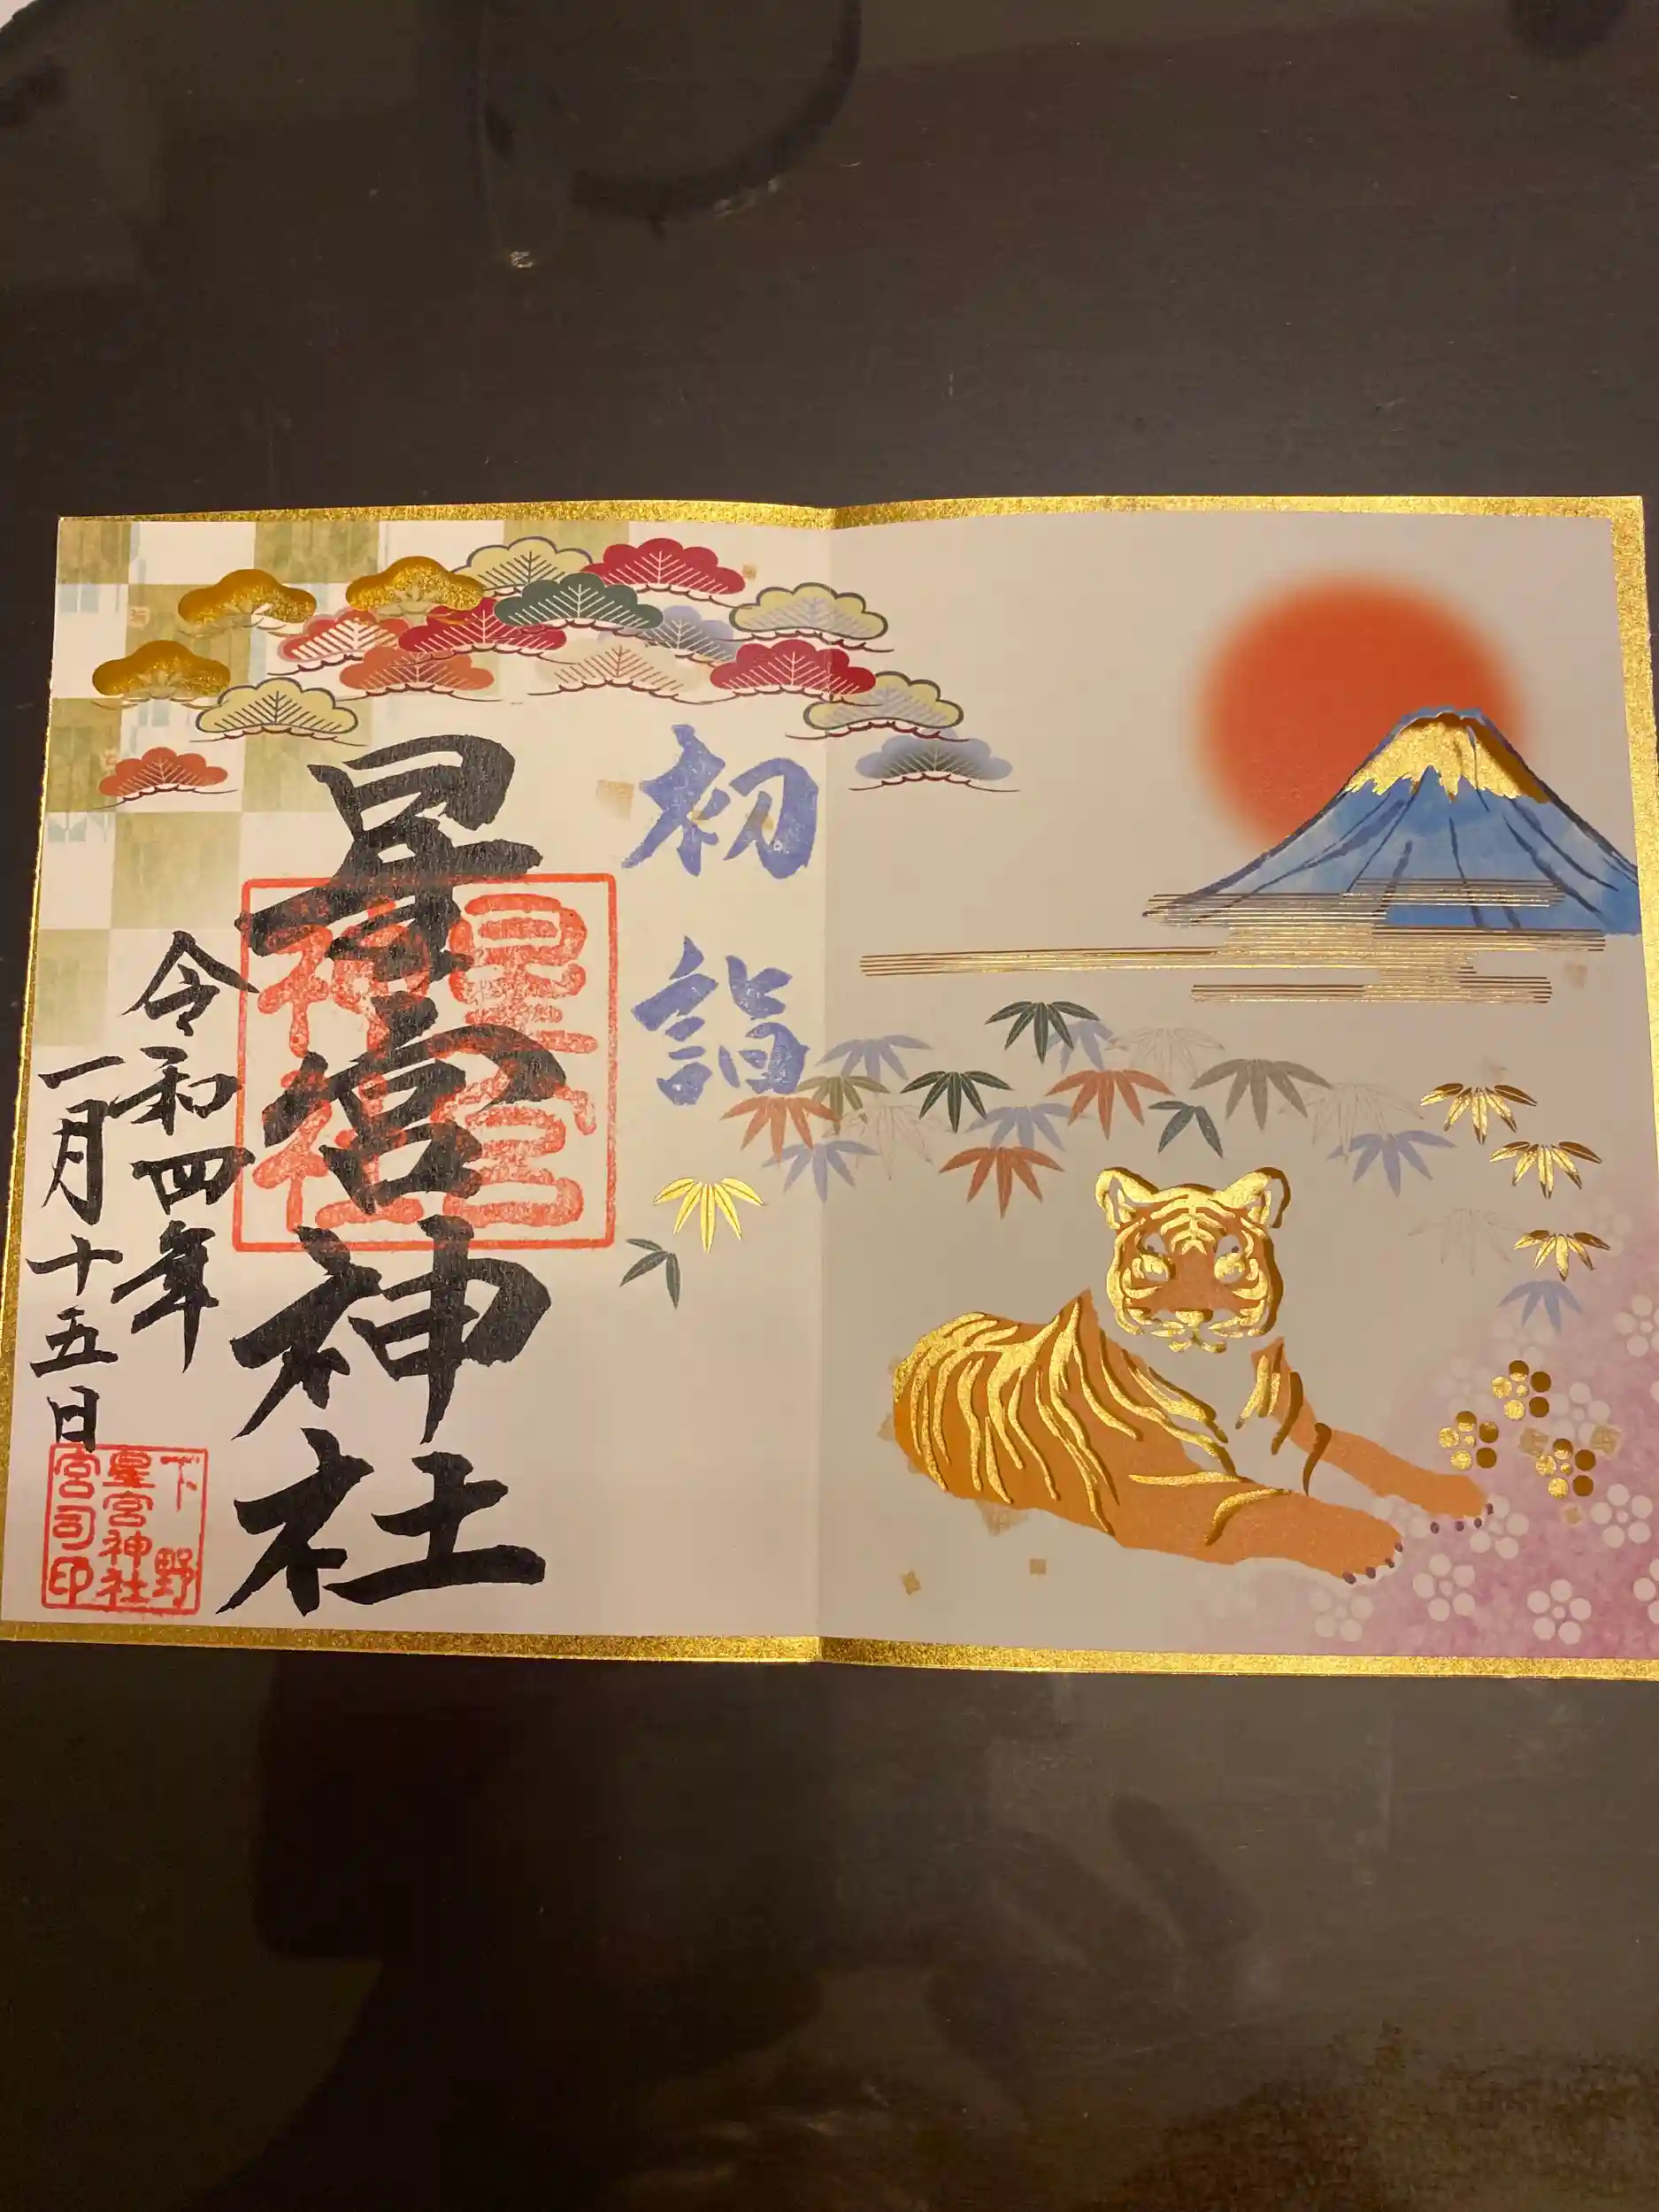 初詣
星宮神社
星宮
神社
令和四年
一月十五日
下野
星宮神社
宮司印